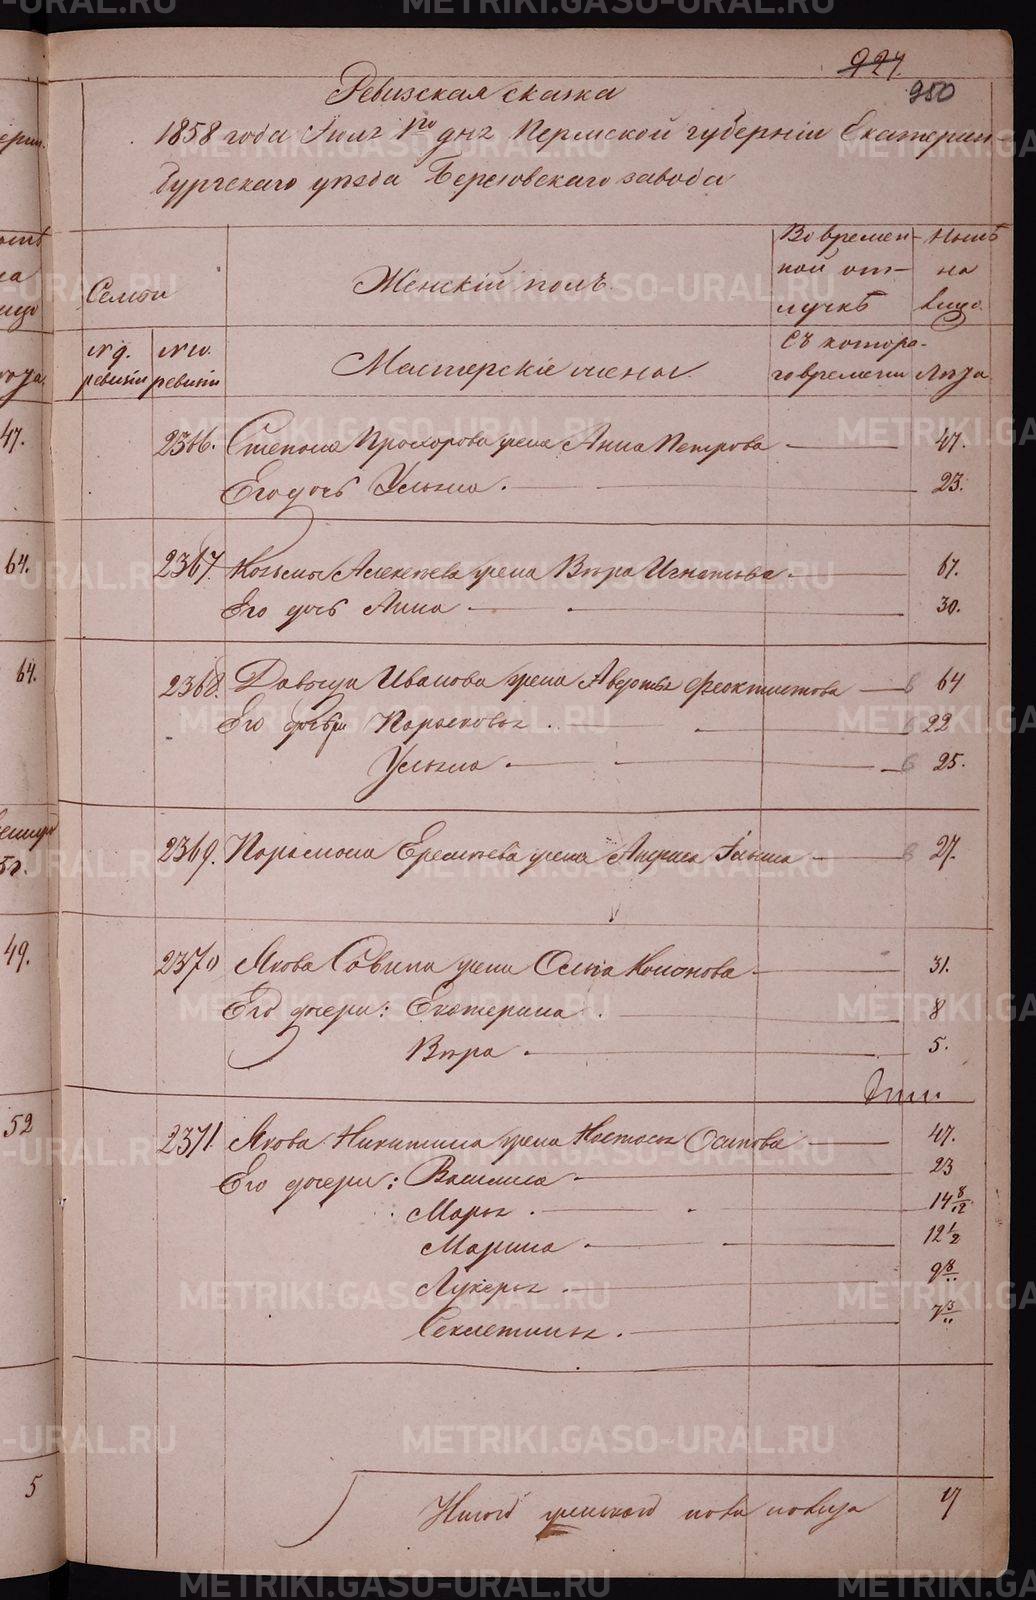 924.
950
Ревизская сказка
1858 года Іюля 1го дня Пермской губерніи Екатерин-
бургскаго уѣзда Березовскаго завода
Семьи
Женскій полъ.
Во времен-
ной от-
лучкѣ
Нынѣ
на
лицо.
№ 9.
ревизіи
№ 10.
ревизіи
Мастерскіе члены.
Съ котора-
го времени
Лѣта
2366. Степана Прохорова жена Анна Петрова 47.
Его дочь Ульяна. 23.
2367. Козьмы Алексѣева жена Вѣра Игнатьева 67.
Его дочь Анна 30.
2368. Давыда Иванова жена Авдотья Феоктистова 64
Его дочери Парасковья 22
Ульяна 25.
2369. Парамона Еремѣева жена 27.
2370 Якова Савина жена Ольга Кононова 31.
Его дочери: Екатерина 8
Вѣра 5.
2371. Якова Никитина жена Настасья Осипова 47.
Его дочери: Василиса 23
Марья 14 8/12
Марина 12 1/2
Лукерья 9 8/"
Секлетинья. 7 3/"
Итого женскаго пола налицо 17
47.
64.
64.
49.
52
5
METRIKI.GASO-URAL.RU